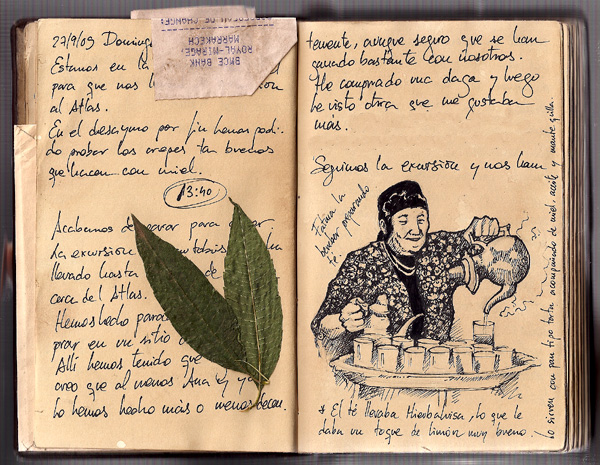 DE CHANGE
BMCE BANK
ROYAL-MIRAGE
MARRAKECH
27/9/09 Doming
Estamos en la
para que nos
al Atlas.
En el desayuno por fin hemos podi-
do probar los crepes tan buenos
que hacen con miel.
13:40
Acabamos de parar para
La excursión
llevado hasta de
cerca del Atlas.
Hemos hecho parad
prar en un sitio
Allí hemos tenido que
creo que al menos Ana y yo
lo hemos hecho más o menos
temente, aunque seguro que se han
ganado bastante con nosotros.
He comprado una daga y luego
he visto otra que me gustaba
más.
Seguimos la excursión y nos han
Fátima la
bereber preparando
té.
lo sirven con pan tipo torta acompañado de miel, aceite y mantequilla.
* El té llevaba Hierbaluisa, lo que le
daba un toque de limón muy bueno.